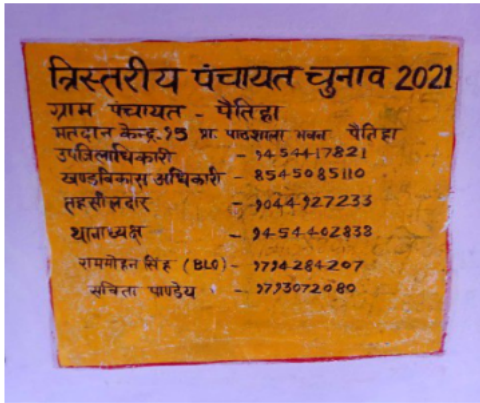 त्रिस्तरीय पंचायत चुनाव 2021
ग्राम पंचायत - पैतिहा
मतदान केन्द्र-95 प्रा. पाठशाला भवन पैतिहा
उपजिलाधिकारी - 9454417821
खण्डविकास अधिकारी - 8545085110
तहसीलदार - 9044927233
थानाध्यक्ष - 9454402838
राममोहन सिंह (BLO) - 9794284207
सचिता पाण्डेय - 9793072080